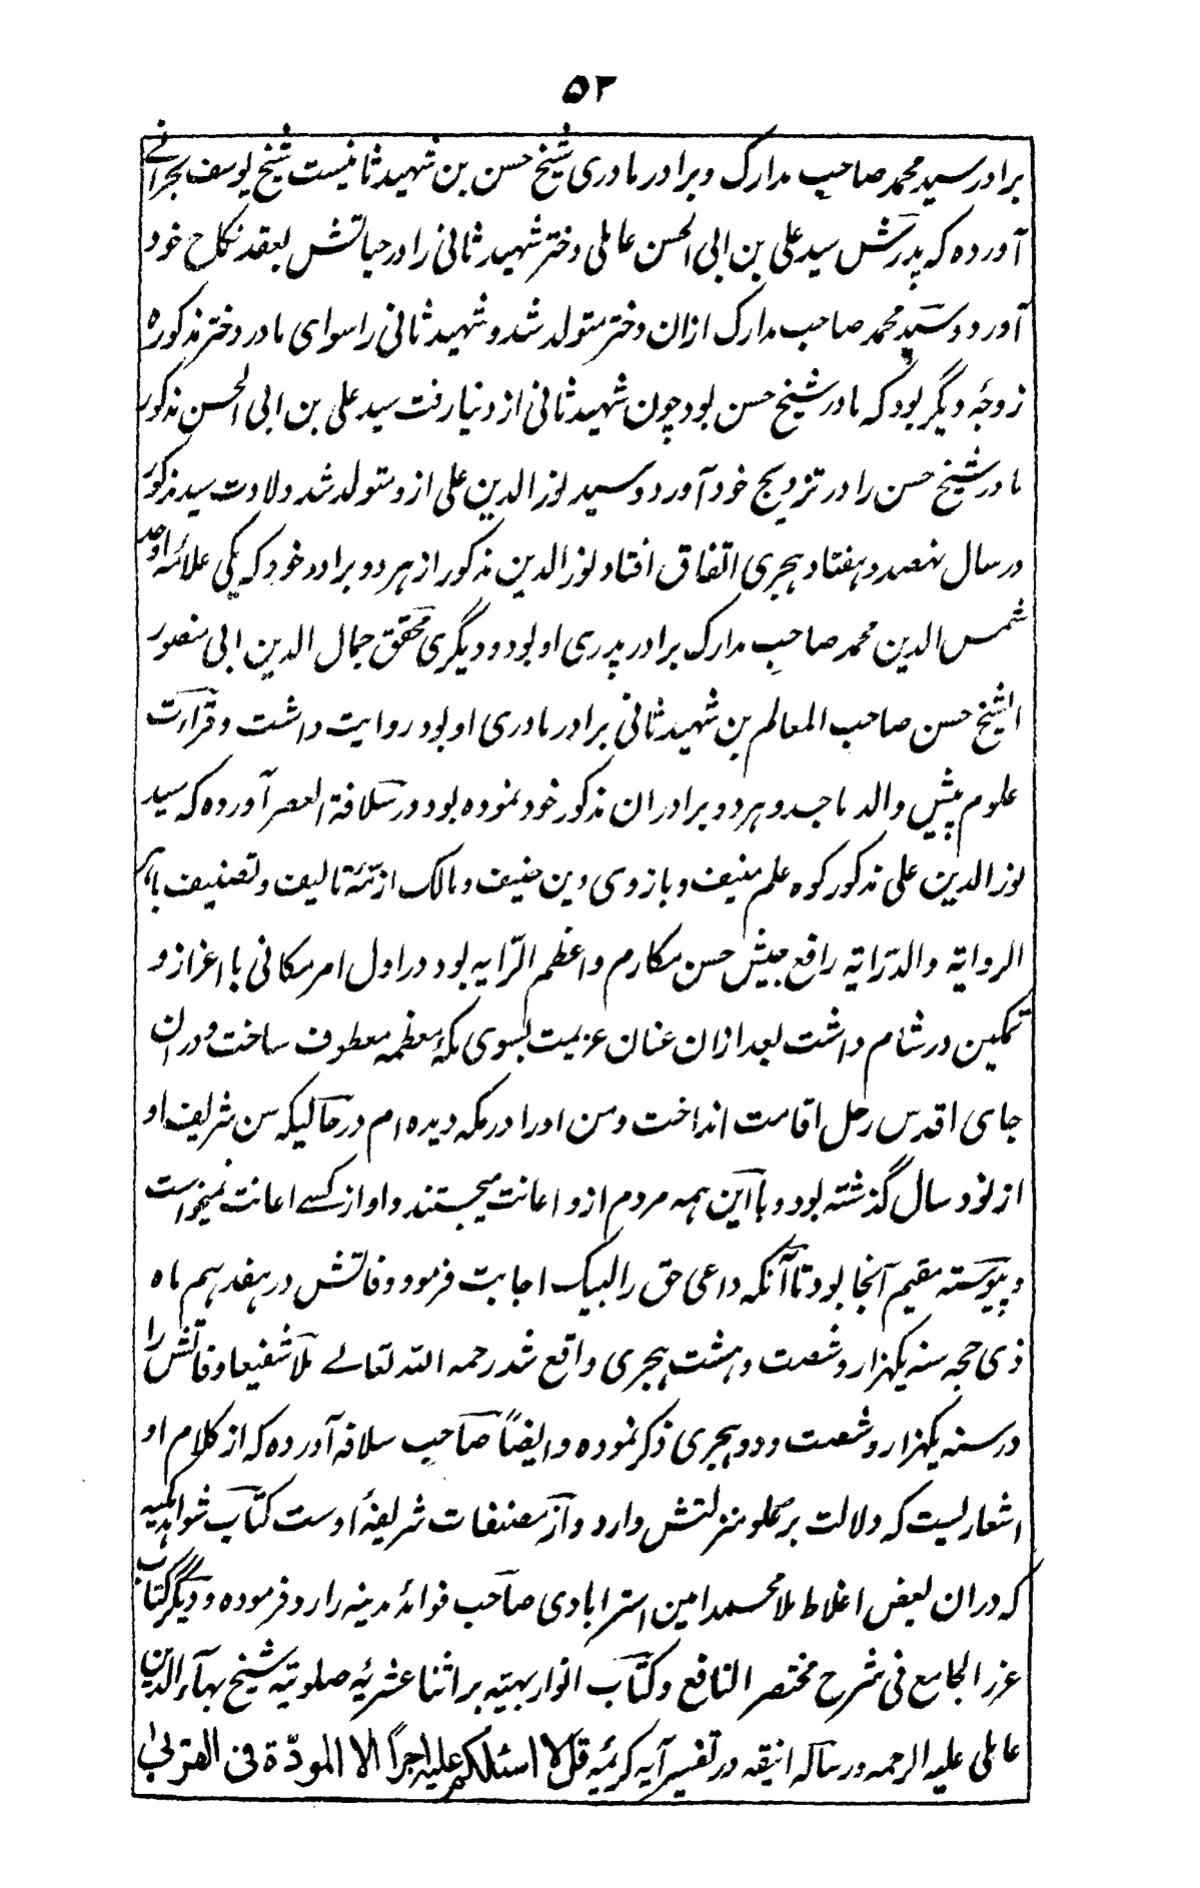 ۵۲
برادر سید محمد صاحب مدارک و برادر مادری شیخ حسن بن شهید ثانیست شیخ یوسف بحرانے
آورده که پدرش سید علی بن ابی الحسن عاملی دختر شهید ثانی را در حیاتش بعقد نکاح خود
آورد و سید محمد صاحب مدارک ازان دختر متولد شد و شهید ثانی را سوای مادر دختر مذکوره
زوجهٔ دیگر بود که مادر شیخ حسن بود چون شهید ثانی از دنیا رفت سید علی بن ابی الحسن مذکور
مادر شیخ حسن را در تزویج خود آورد و سید نور الدین علی ازو متولد شد ولادت سید مذکور
در سال نهصد و هفتاد هجری اتفاق افتاد نور الدین مذکور از هر دو برادر خود که یکی علامهٔ اوحد
شمس الدین محمد صاحب مدارک برادر پدری او بود و دیگری محقق جمال الدین ابی منصور
الشیخ حسن صاحب المعالم بن شهید ثانی برادر مادری او بود روایت داشت و قراءت
علوم پیش والد ماجد و هر دو برادران مذکور خود نموده بود در سلافة العصر آورده که سید
نور الدین علی مذکور کوه علم منیف و بازوی دین حنیف و مالک ازمّهٔ تالیف و تصنیف باهر
الروایة والدّرایة رافع جیش حسن مکارم و اعظم الرّایه بود در اول امر مکانی با اعزاز و
تمکین در شام داشت بعد ازان عنان عزیمت بسوی مکهٔ معظمه معطوف ساخت و در ان
جای اقدس رحل اقامت انداخت و من او را در مکه دیده ام در حالیکه سن شریف او
از نود سال گذشته بود و با این همه مردم ازو اعانت میجستند و او از کسے اعانت نمیخواست
و پیوسته مقیم آنجا بود تا آنکه داعی حق را لبیک اجابت فرمود و فاتش در هفدهم ماه
ذی حجه سنه یکهزار و شصت و هشت هجری واقع شد رحمه الله تعالے ملا شفیعا وفاتش را
در سنه یکهزار و شصت و دو هجری ذکر نموده و ایضاً صاحب سلافه آورده که از کلام او
اشعاریست که دلالت بر علو منزلتش دارد و از مصنفات شریفهٔ اوست کتاب شواهد مکیه
که در ان بعض اغلاط ملا محمد امین استرابادی صاحب فوائد مدینه را رد فرموده و دیگر کتاب
غرر الجامع فی شرح مختصر النافع و کتاب انوار بهیّه بر اثنا عشریّه صلوتیّه شیخ بهاء الدین
عاملی علیه الرحمه و رساله انیقه در تفسیر آیه کریمه قل لا اسئلکم علیه اجراً الا المودّة فی القربیٰ